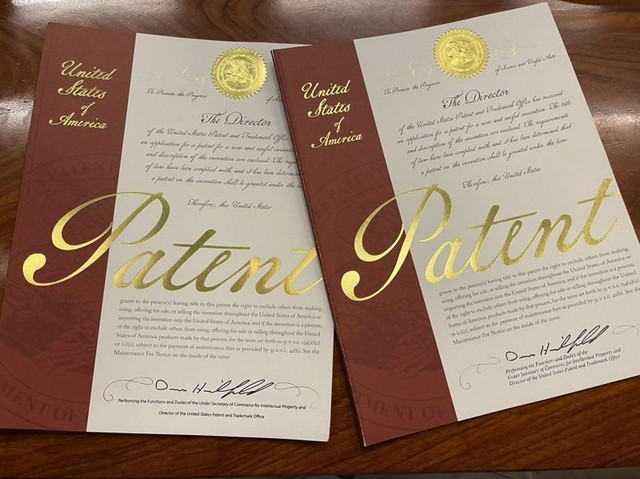 United
States
of
America
To Promote the Progress
of
The Director
of the United States Patent and Trademark Office
an application for a patent for a new and useful
and description of the invention are enclosed. The
of law have been complied with, and it has been
a patent on the invention shall be granted under the
Therefore, this United States
Patent
grants to the person(s) having title to this patent the right to exclude others from making,
using, offering for sale, or selling the invention throughout the United States of America or
importing the invention into the United States of America, and if the invention is a process,
of the right to exclude others from using, offering for sale or selling throughout the United
States of America, products made by that process, for the term set forth in 35 U.S.C. 154(a)(2)
or (c)(1), subject to the payment of maintenance fees as provided by 35 U.S.C. 41(b). See the
Maintenance Fee Notice on the inside of the cover.
Performing the Functions and Duties of the Under Secretary of Commerce for Intellectual Property and
Director of the United States Patent and Trademark Office
MENT OF
United
States
of
America
To Promote the Progress
of Science and Useful Arts
The Director
of the United States Patent and Trademark Office has received
an application for a patent for a new and useful invention. The title
and description of the invention are enclosed. The requirements
of law have been complied with, and it has been determined that
a patent on the invention shall be granted under the law.
Therefore, this United States
Patent
grants to the person(s) having title to this patent the right to exclude others from making,
using, offering for sale, or selling the invention throughout the United States of America or
importing the invention into the United States of America, and if the invention is a process,
of the right to exclude others from using, offering for sale or selling throughout the United
States of America, products made by that process, for the term set forth in 35 U.S.C. 154(a)(2)
or (c)(1), subject to the payment of maintenance fees as provided by 35 U.S.C. 41(b). See the
Maintenance Fee Notice on the inside of the cover.
Performing the Functions and Duties of the
Under Secretary of Commerce for Intellectual Property and
Director of the United States Patent and Trademark Office